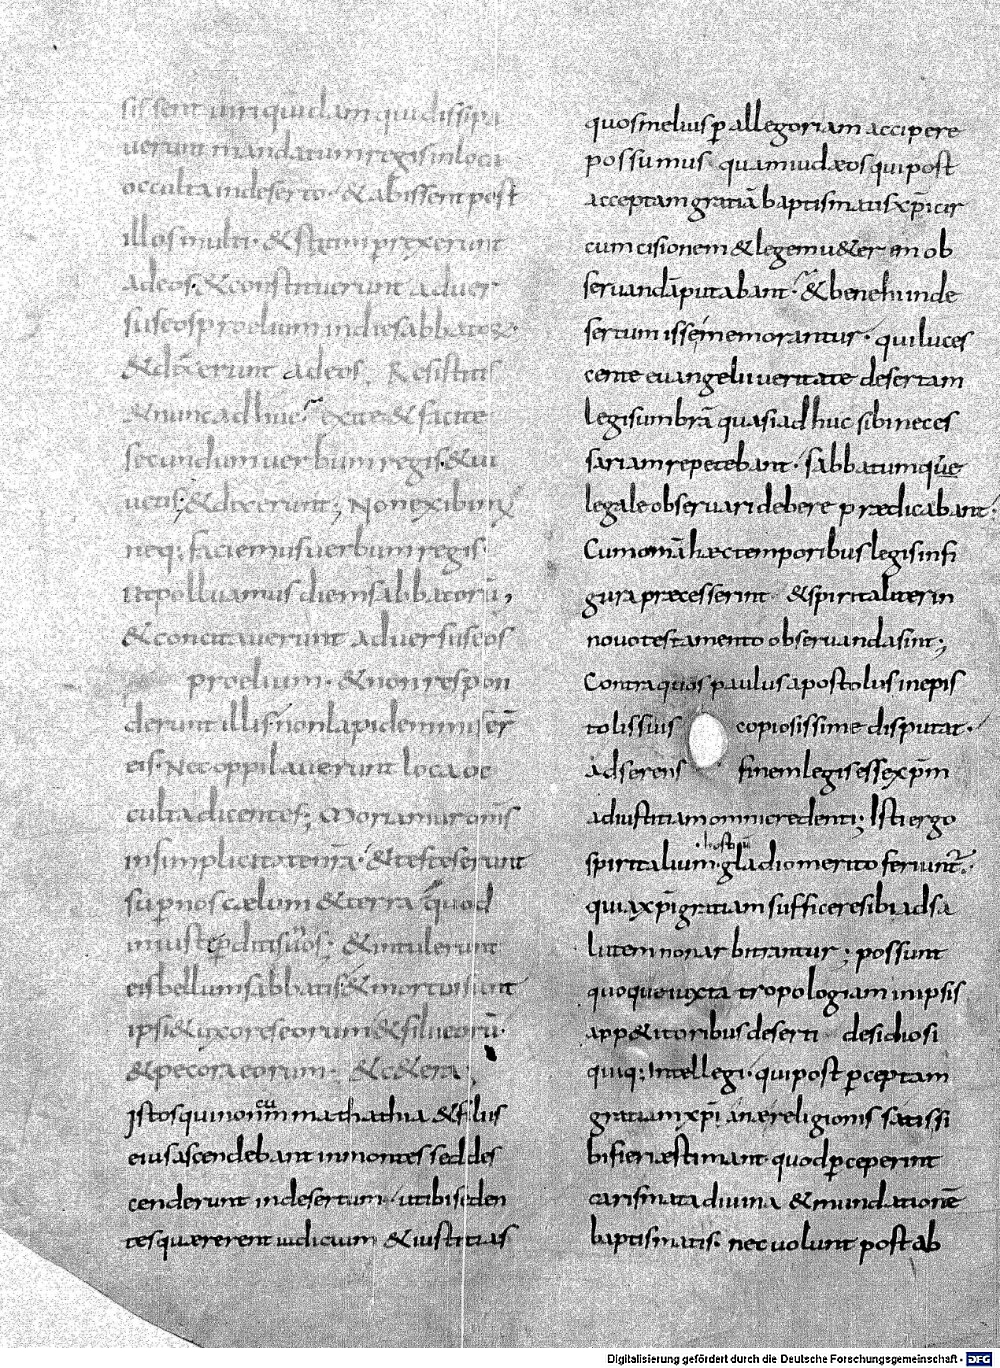 sissent uiri quidam qui dissipa
uerunt mandatum regis in loca
occulta in deserto· & abissent post
illos multi· & statim prexerunt
ad eos· & constituerunt aduer
sus eos proelium in die sabbatorũ·
& dixerunt ad eos· Resistitis
& nunc adhuc? exite & facite
secundum uerbum regis· & ui
uetis; & dixerunt; Non exibimꝰ
neq; faciemus uerbum regis·
ut polluamus diem sabbatorũ,
& concitauerunt aduersus eos
proelium· & non respon
derunt illis· non lapidem miseř
eis· Nec oppilauerunt loca oc
culta dicentes; Moriamur om̃s
in simplicitate nr̃a· & testes erunt
sup̱ nos cælum & terra quod
iniuste p̱ditis uos· & intulerunt
eis bellum sabbatis· & mortui sunt
ipsi & uxores eorum & filii eorũ·
& pecora eorum· & c&era;
Istos qui non cũ mathathia & filiis
eius ascendebant in montes sed des
cenderunt in desertum· ut ibi seden
tes quærerent iudicium & iustitias
quos melius p̱ allegoriam accipere
possumus quam iudæos qui post
acceptam gratiã baptismatis xp̃i cir
cumcisionem & legem u&erem ob
seruandã putabant· & bene hi in de
sertum isse memorantur· qui luces
cente euangelii ueritate desertam
legis umbrã quasi adhuc sibi neces
sariam repetebant· sabbatumq̃ue
legale obseruari debere prædicabant·
Cum om̃ia hæc temporibus legis in fi
gura præcesserint & spiritaliter in
nouo testamento obseruanda sint;
Contra quos paulus apostolus in epis
tolis suis copiosissime disputat·
Adserens finem legis esse xp̃m
ad iustitiam omni credenti; Isti ergo
·hostiũ
spiritalium· gladio merito feriunt̃·
quia xp̃i gratiam sufficere sibi ad sa
lutem non arbitrantur; possunt
quoque iuxta tropologiam in ipsis
app&itoribus deserti desidiosi
quiq; intellegi· qui post p̱ceptam
gratiam xp̃i anæ religionis satis si
bi fieri æstimant quod p̱ceperint
carismata diuina & mundationẽ
baptismatis· nec uolunt post ab
Digitalisierung gefördert durch die Deutsche Forschungsgemeinschaft - DFG